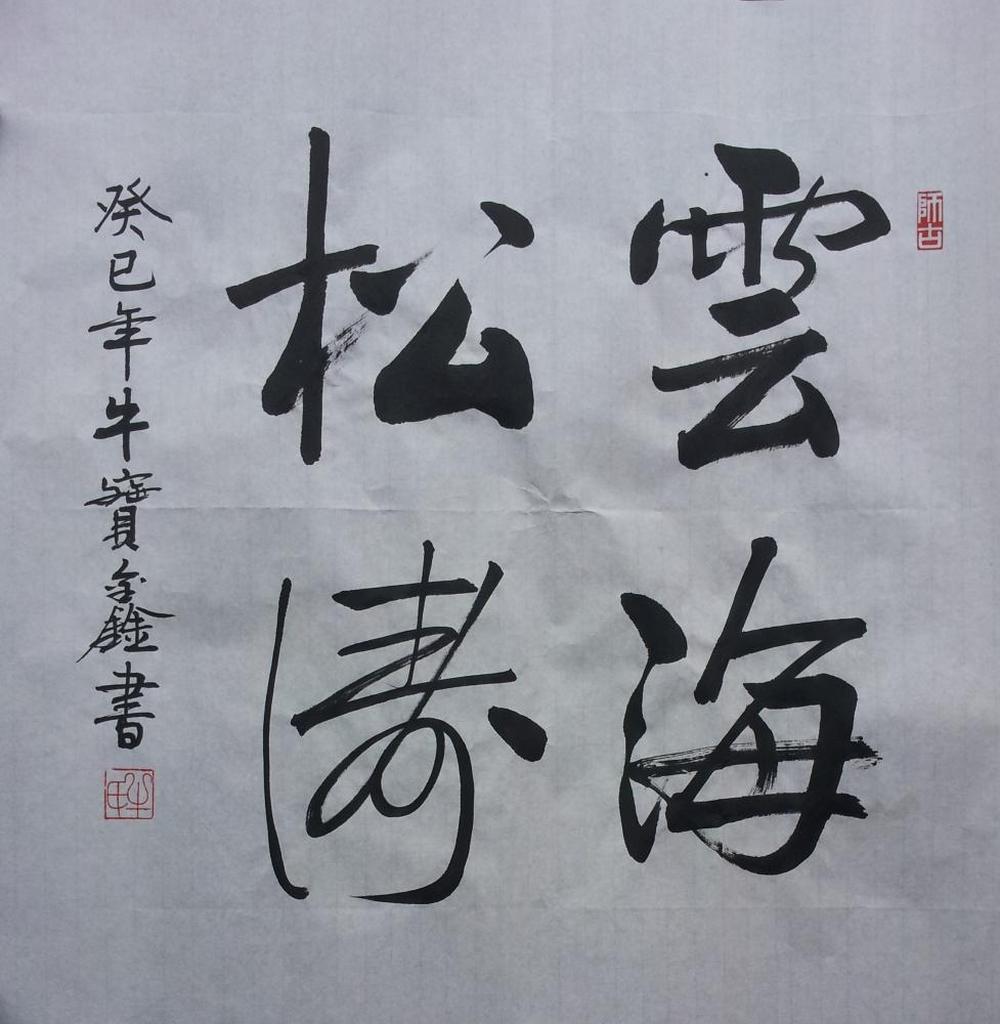 師古
雲海
松涛
癸巳年牛寶鑫書
牛氏